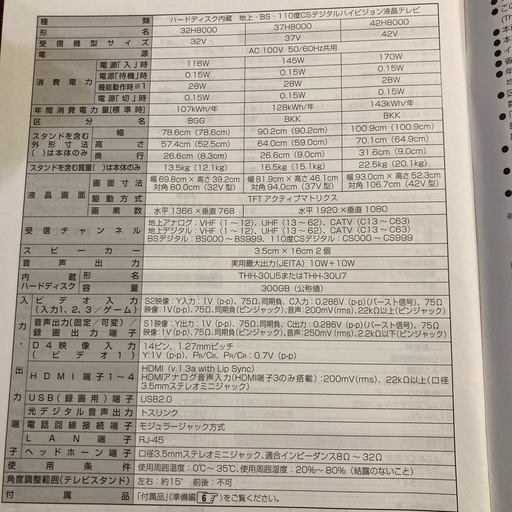 種類 ハードディスク内蔵 地上・BS・110度CSデジタルハイビジョン液晶テレビ
形名 32H8000 37H8000 42H8000
受信機型サイズ 32V 37V 42V
電源 AC 100V 50/60Hz共用
消費電力 電源「入」時 116W 145W 170W
電源「待機」時 0.15W 0.15W 0.15W
機能動作時※1 28W 28W 28W
電源「切」時 0.15W 0.15W 0.15W
年間消費電力量(標準時) 107kWh/年 128kWh/年 143kWh/年
区分 BGG BKK BKK
スタンドを含む外形寸法 ( )は本体のみ 幅 78.6cm (78.6cm) 90.2cm (90.2cm) 100.9cm (100.9cm)
高さ 57.4cm (52.5cm) 64.0cm (59.0cm) 70.1cm (64.9cm)
奥行 26.6cm (8.3cm) 26.6cm (9.0cm) 31.6cm (9.0cm)
スタンドを含む質量( )は本体のみ 13.5kg (12.1kg) 16.5kg (15.1kg) 22.5kg (20.1kg)
液晶画面 画面寸法 幅69.8cm×高さ39.2cm 対角80.0cm (32V型) 幅81.9cm×高さ46.1cm 対角94.0cm (37V型) 幅93.0cm×高さ52.3cm 対角106.7cm (42V型)
駆動方式 TFTアクティブマトリクス
画素数 水平1366×垂直768 水平1920×垂直1080
受信チャンネル 地上アナログ:VHF (1〜12)、UHF (13〜62)、CATV (C13〜C63)
地上デジタル:VHF (1〜12)、UHF (13〜62)、CATV (C13〜C63)
BSデジタル:BS000〜BS999、110度CSデジタル:CS000〜CS999
スピーカー 3.5cm×16cm 2個
音声出力 実用最大出力(JEITA) 10W+10W
内蔵ハードディスク 形名 THH-30U5またはTHH-30U7
容量 300GB (公称値)
入力・出力端子 ビデオ入力(入力1、2、3/ゲーム) S2映像:Y入力:1V (p-p)、75Ω、同期負、C入力:0.286V (p-p)(バースト信号)、75Ω
映像:1V(p-p)、75Ω、同期負(ピンジャック)、音声:200mV(rms)、22kΩ以上(ピンジャック)
音声出力(固定/可変)/録画出力端子 S1映像:Y出力:1V (p-p)、75Ω、同期負、C出力:0.286V (p-p)(バースト信号)、75Ω
映像:1V(p-p)、75Ω、同期負(ピンジャック)、音声:250mV(rms)、2.2kΩ以下(ピンジャック)
D4映像入力(ビデオ1) 14ピン、1.27mmピッチ
Y:1V (p-p)、PB/CB、PR/CR:0.7V (p-p)
HDMI端子1〜4 HDMI (v.1.3a with Lip Sync)
HDMIアナログ音声入力(HDMI端子3のみ搭載):200mV(rms)、22kΩ以上(口径
3.5mmステレオミニジャック)
USB(録画用)端子 USB2.0
光デジタル音声出力 トスリンク
電話回線接続端子 モジュラージャック方式
LAN端子 RJ-45
ヘッドホーン端子 口径3.5mmステレオミニジャック、適合インピーダンス8Ω〜32Ω
使用条件 使用周囲温度:0℃〜35℃、使用周囲湿度:20%〜80%(結露のないこと)
角度調整範囲(テレビスタンド) 左右:約15° 前後:不可
付属品 「付属品」(準備編6)をご覧ください。